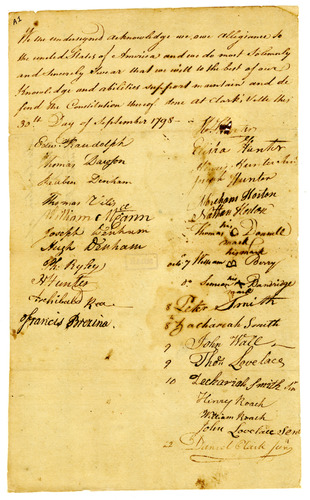 A2
We the undersigned acknowledge we owe allegiance to
the united States of America and we do most solemnly
and sincerely Swear that we will to the best of our
Knowledge and abilities support maintain and de
fend the Constitution thereof done at Clarksville this
30th Day of September 1798
Edm. Randolph
Thomas Dawson
Reuben Denham
Thomas
William Mc
Joseph Denham
Hugh Denham
Ph. Bybey
H Hunter
Archibald Rea
Francis Brezina
H. Hunter
Elijah Hunter
Hunter
Hunter
Abraham Horton
Nathan Horton
his
Thomas O Donnell
mark
his mark
octo 7 William Berry
his
8 Bandridge
mark
8 Peter Smith
8 Zachareah Smith
9 John Wall
9 Thos Lovelace
10 Zechariah Smith
Henry Roach
William Roach
John Lovelace
22 Daniel Clark